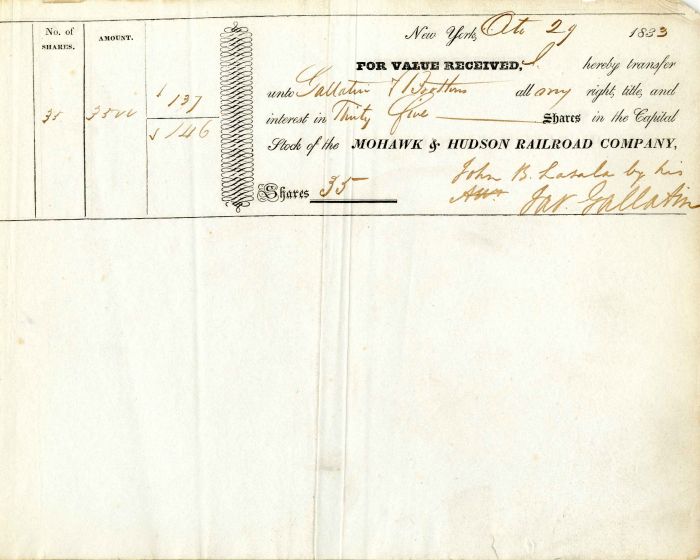 No. of
SHARES.
AMOUNT.
35
3500
$ 137
$ 146
New York, Oct 29 1833
FOR VALUE RECEIVED, I hereby transfer
unto Gallatin & Brothers all my right, title, and
interest in Thirty five Shares in the Capital
Stock of the MOHAWK & HUDSON RAILROAD COMPANY,
John B. Lasala by his
Shares 35
Atty Jas. Gallatin